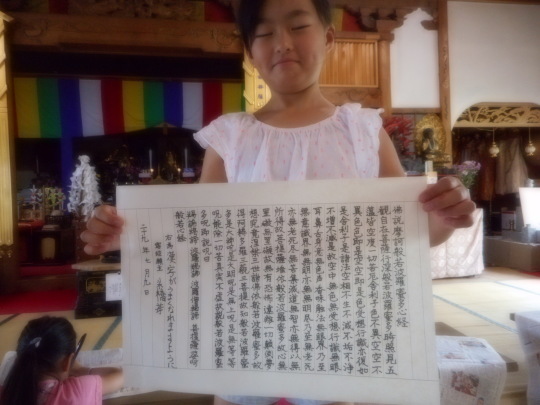 佛説摩訶般若波羅蜜多心経
観自在菩薩行深般若波羅蜜多時照見五
蘊皆空度一切苦厄舎利子色不異空空不
異色色即是空空即是色受想行識亦復如
是舎利子是諸法空相不生不滅不垢不浄
不増不減是故空中無色無受想行識無眼
耳鼻舌身意無色声香味触法無眼界乃至
無意識界無無明亦無無明尽乃至無老死
亦無老死尽無苦集滅道無智亦無得以無
所得故菩提薩埵依般若波羅蜜多故心無
罣礙無罣礙故無有恐怖遠離一切顛倒夢
想究竟涅槃三世諸仏依般若波羅蜜多故
得阿耨多羅三藐三菩提故知般若波羅蜜
多是大神呪是大明呪是無上呪是無等等
呪能除一切苦真実不虚故説般若波羅蜜
多呪即説呪曰
羯諦羯諦 波羅羯諦 波羅僧羯諦 菩提薩婆訶
般若心経
為 漢字がうまくなれますように
願主
二九年七月九日